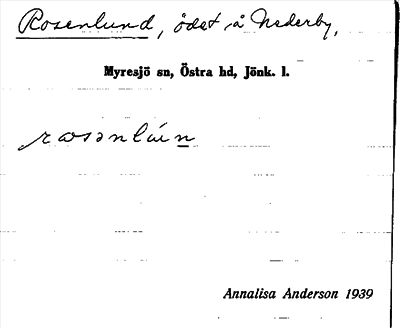 Rosenlund, ödet å Nederby,
Myresjö sn, Östra hd, Jönk. l.
rosənlún
Annalisa Anderson 1939